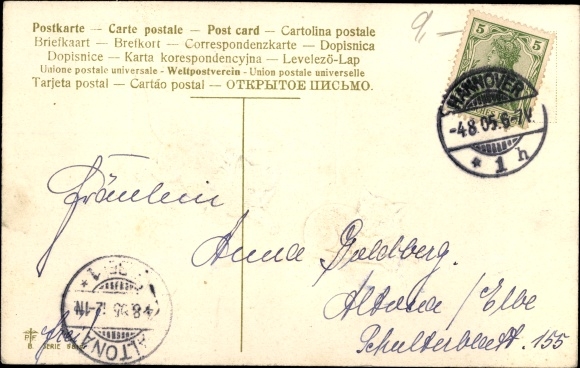 Postkarte – Carte postale – Post card – Cartolina postale
Briefkaart – Brefkort – Correspondenzkarte – Dopisnica
Dopisnice – Karta korespondencyjna – Levelező-Lap
Unione postale universale - Weltpostverein - Union postale universelle
Tarjeta postal – Cartão postal – ОТКРЫТОЕ ПИСЬМО.
9,–
5 5
HANNOVER
-4.8.05.6-7V.
* 1 h
Fräulein
Anna Goldberg.
Altona / Elbe
Schulterblatt. 155
ALTONA
4.8.05.12-1N
1*
PFB
SERIE
frei